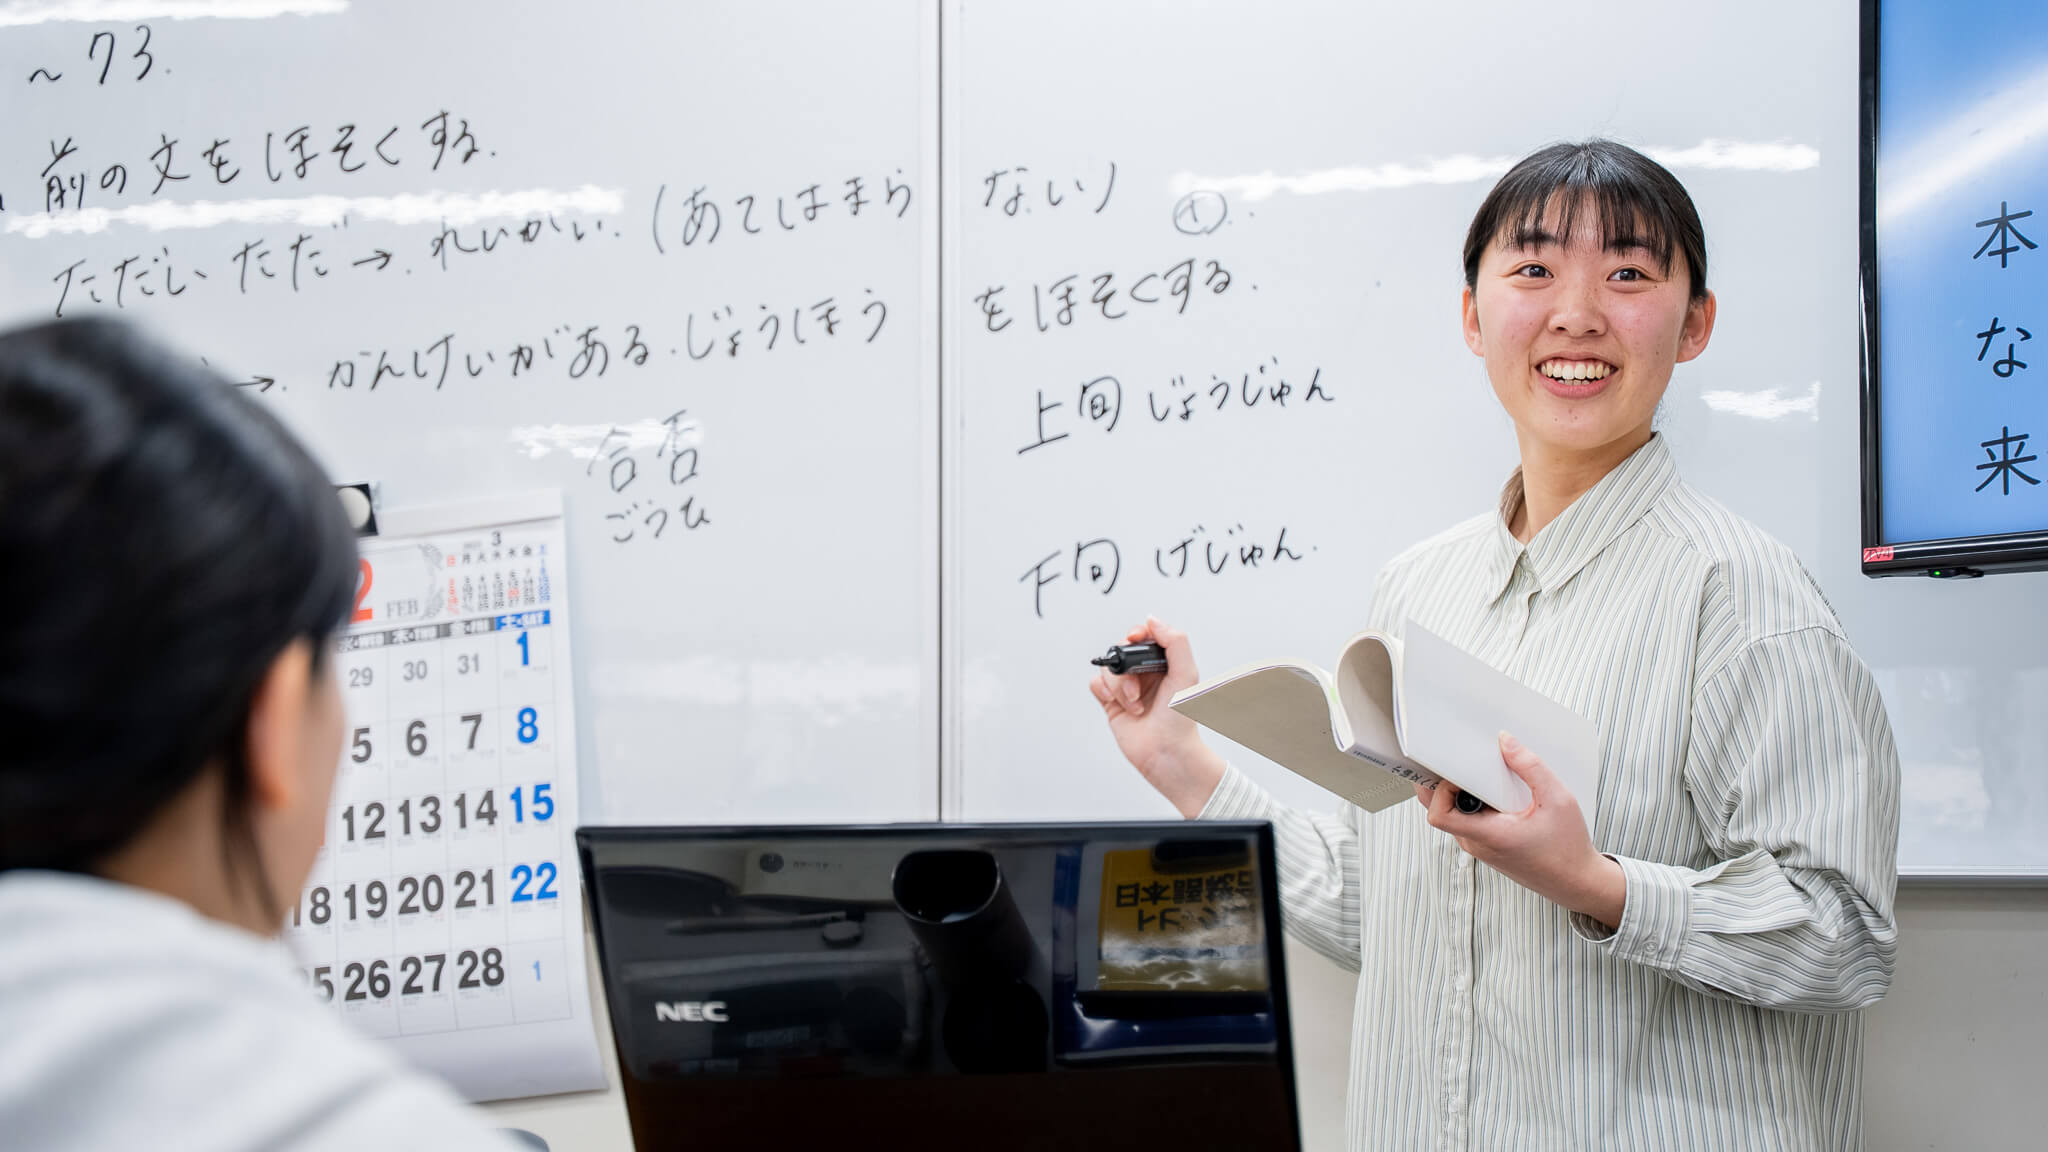 ~73.
前の文をほそくする.
ただし、ただ→.れいがい.(あてはまらない)
→.かんけいがある.じょうほうをほそくする.
合否
ごうひ
上旬 じょうじゅん
下旬 げじゅん.
本
な
来
3
日月火水木金土
2 FEB
水・WED 木・THU 金・FRI 土・SAT
29 30 31 1
5 6 7 8
12 13 14 15
18 19 20 21 22
25 26 27 28 1
NEC